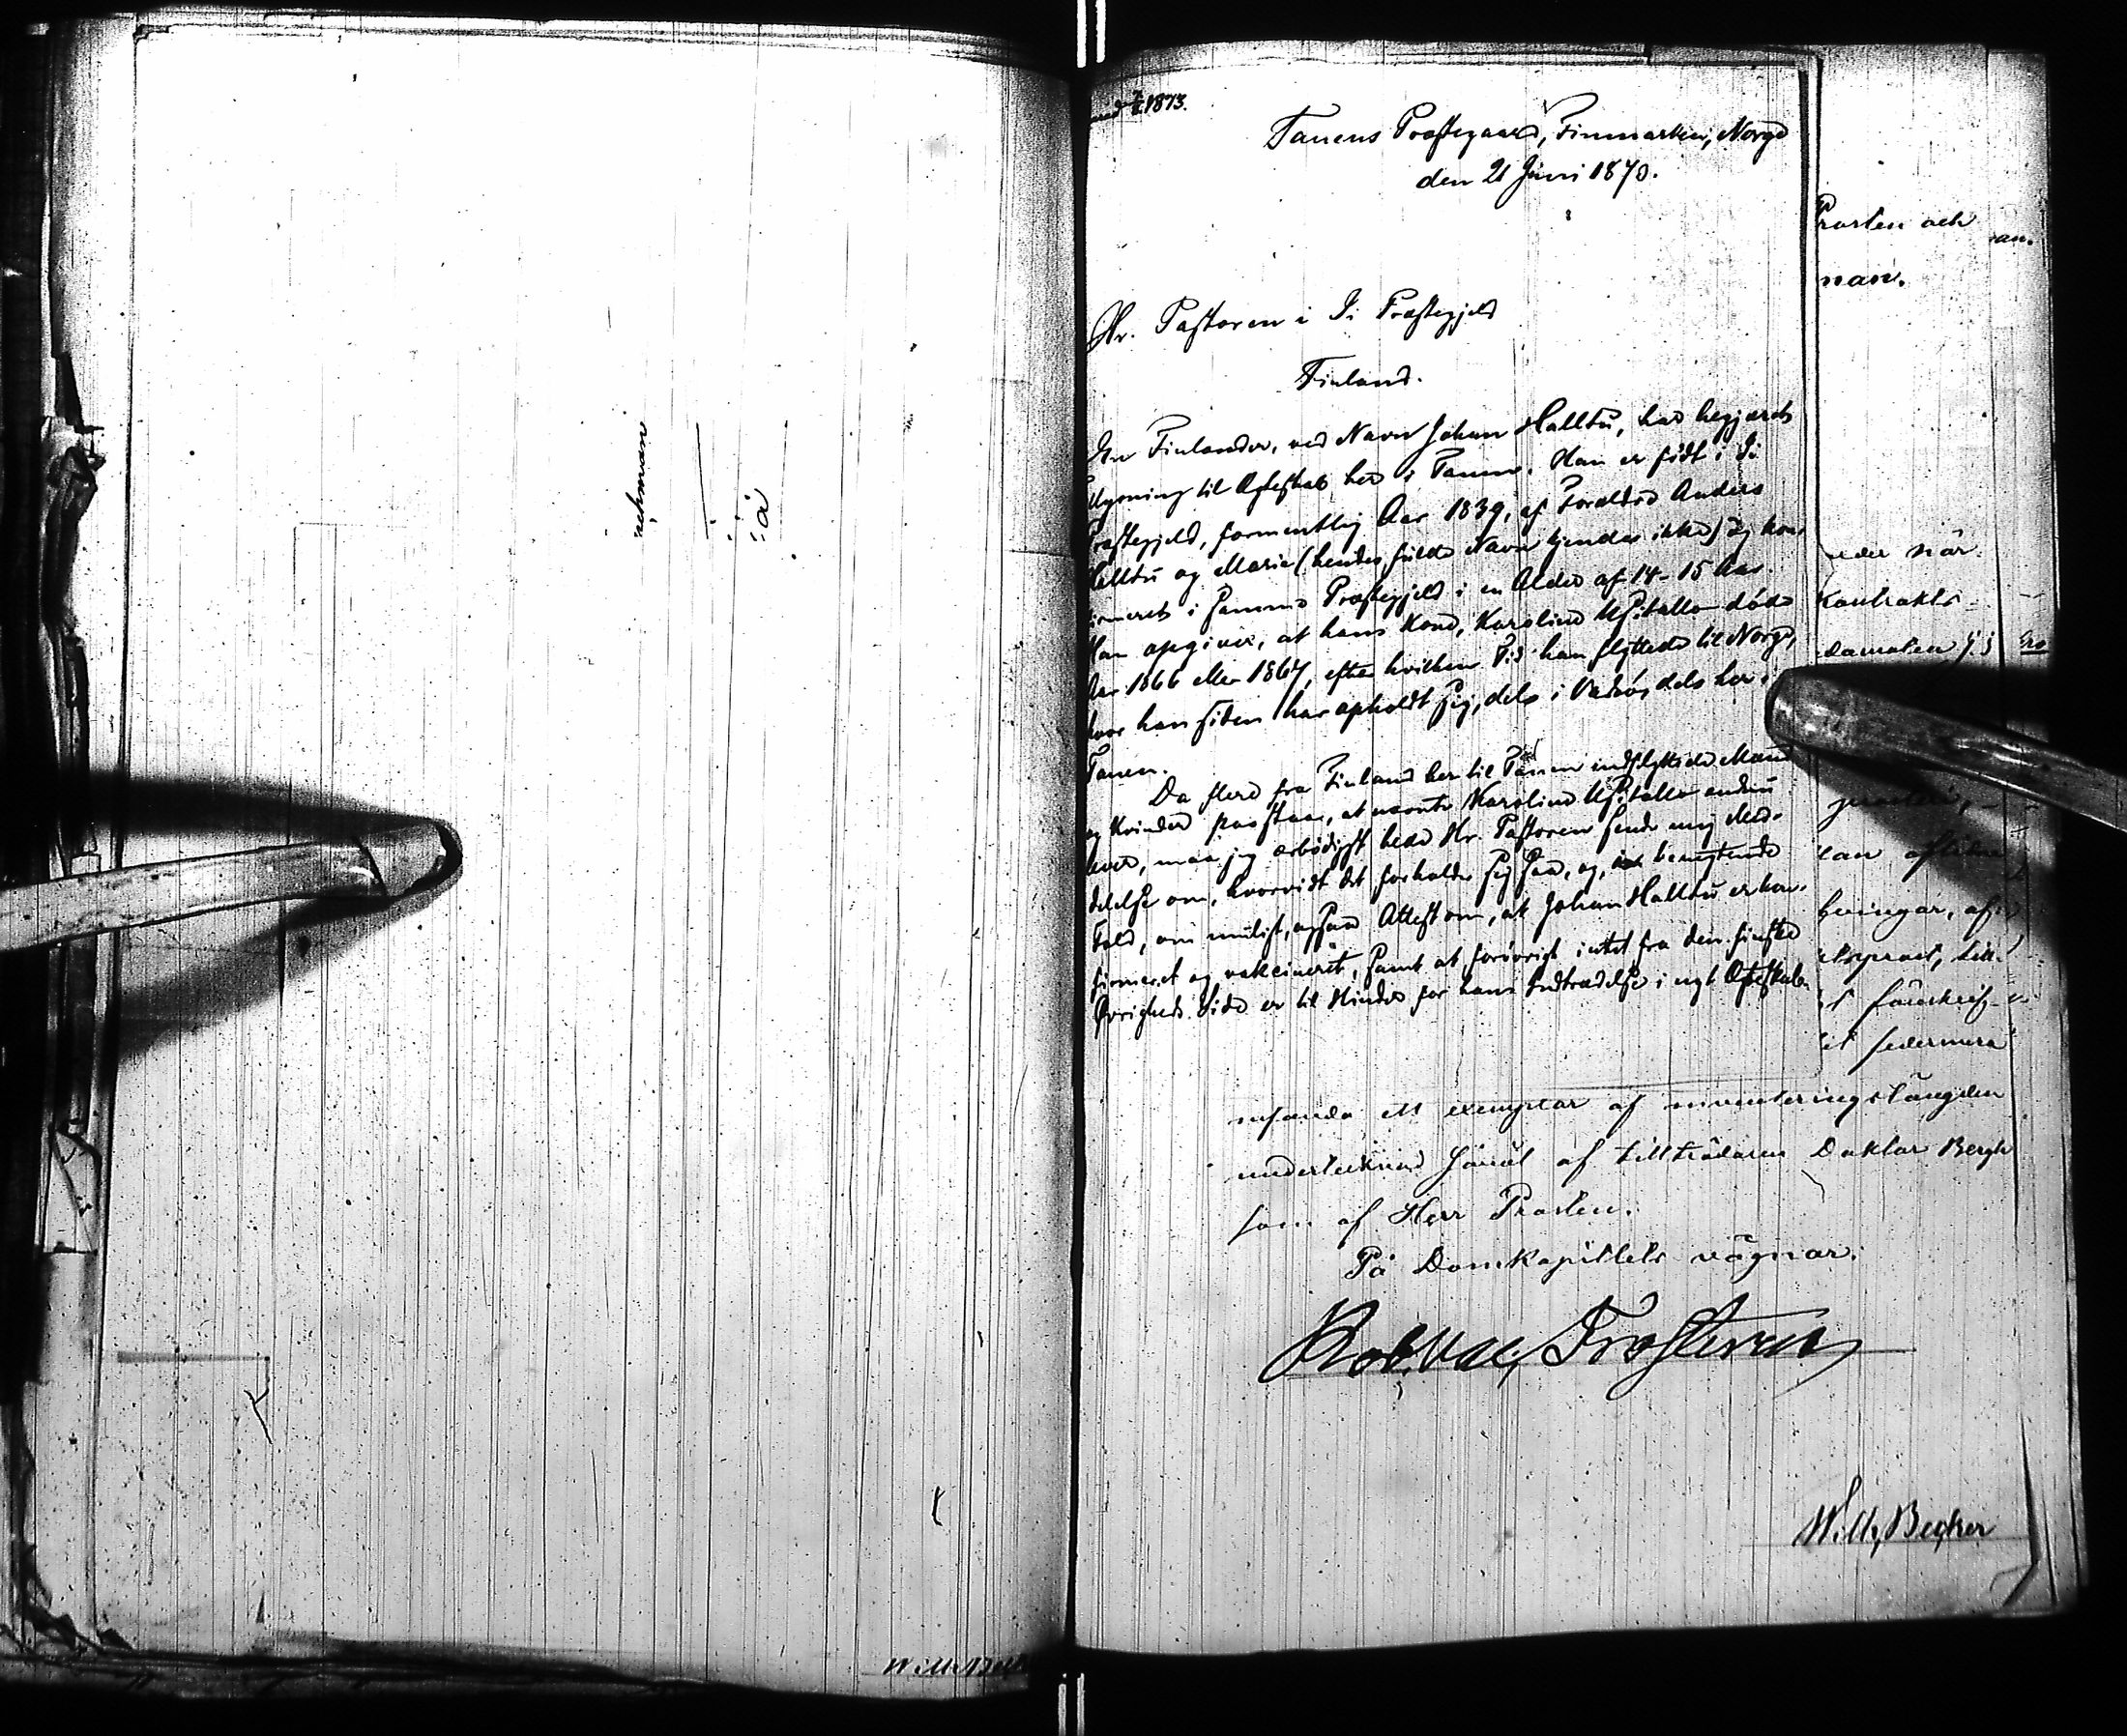 1873.
Tanens Præstegaard, Finmarken, Norge
den 21 Juni 1870.
Hr. Pastoren i Ii Præstegjeld
Finland.
En Finlænder, ved Navn Johan Halltu, har begjæret
Lysning til Ægteskab her i Tanen. Han er född i Ii
Præstegjeld, formentlig Aar 1839, af Forældre Anders
Halltu og Maria (hendes fulde Navn kjendes ikke) og kon-
firmeret i samme Præstegjeld i en Alder af 14-15 Aar.
Han opgiver, at hans Kone, Karoline döde
Aar 1866 eller 1867, efter hvilken Tid han flyttede til Norge,
hvor han siden har opholdt sig, dels i Vadsö, dels her i
Tanen.
Da flere fra Finland her til Tanen indflyttede Mænd
og Kvinder paastaa, at nævnte Karoline endnu
lever, maa jeg ærbödigst bede Hr. Pastoren sende mig Med-
delelse om, hvorvidt det forholder sig saa, og, benegtende
Fald, om muligt, ogsaa Attest om, at Johan Halltu er kon-
firmeret og vakcineret, samt at forövrigt intet fra den finske
Övrigheds Side er til Hinder for hans Indtrædelse i nyt Ægteskab.
Prosten och
man.
eder när
Kontrakts-
insända ett exemplar af inventeringslängden
undertecknad såväl af tillträdaren Doktor Bergh
som af Herr Prosten.
På Domkapitlets vägnar:
Rob. Val. Frosterus
Wilh. Becker